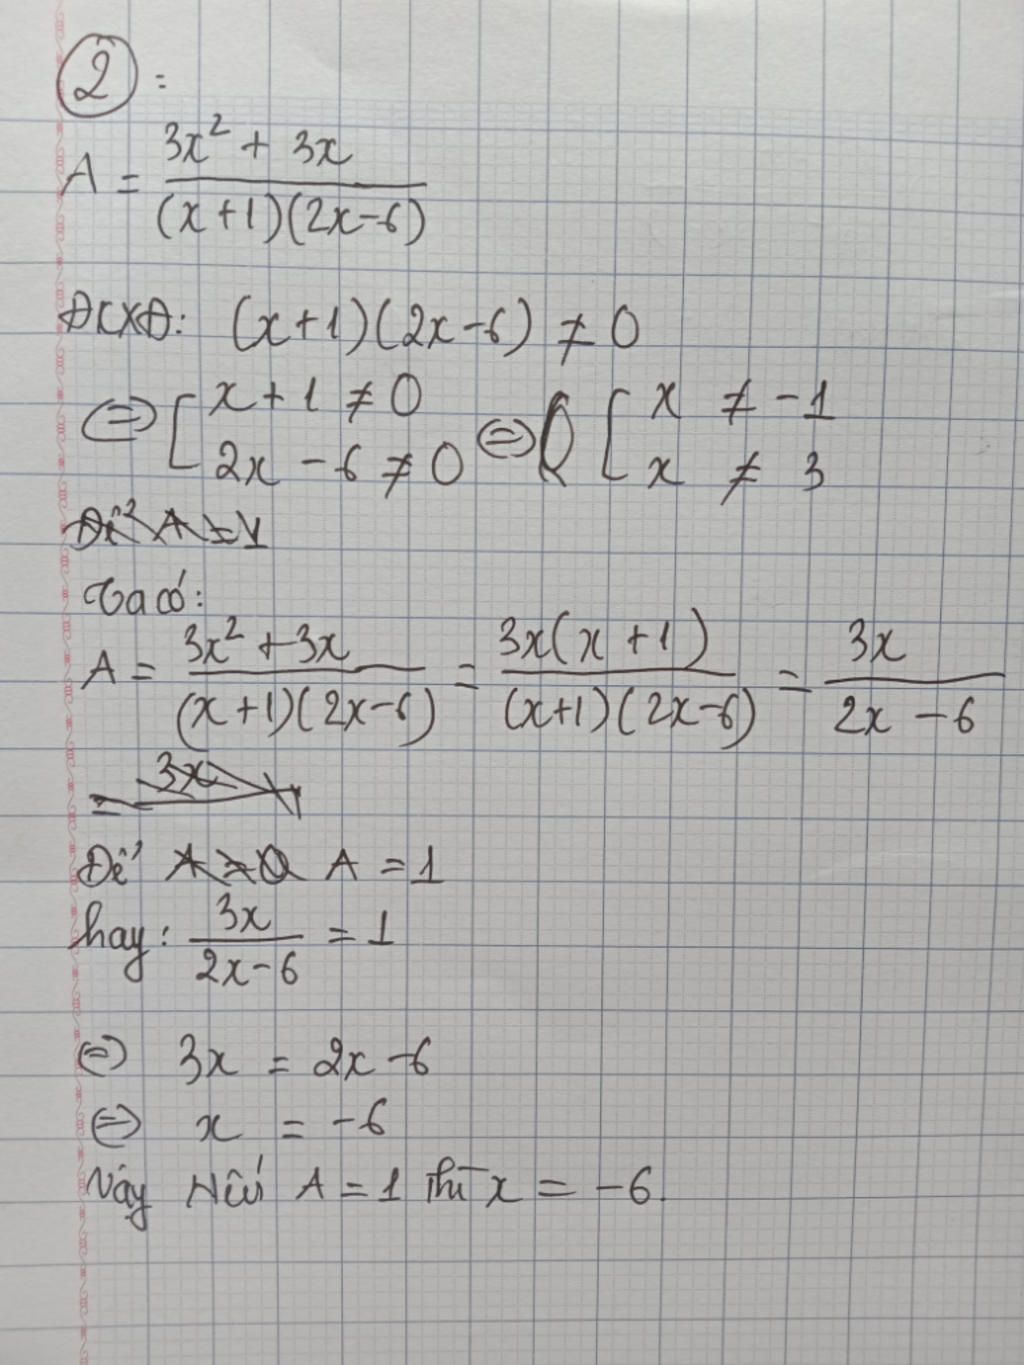 ② :
A = (3x² + 3x) / ((x+1)(2x-6))
ĐKXĐ: (x+1)(2x-6) ≠ 0
⇔ [ x+1 ≠ 0 ⇔ [ x ≠ -1
2x - 6 ≠ 0 x ≠ 3
Để A = 1
Ta có:
A = (3x² + 3x) / ((x+1)(2x-6)) = 3x(x+1) / ((x+1)(2x-6)) = 3x / (2x - 6)
= 3x
Để A = 0 A = 1
hay: 3x / (2x-6) = 1
⇔ 3x = 2x - 6
⇔ x = -6
Vậy Nếu A = 1 thì x = -6.